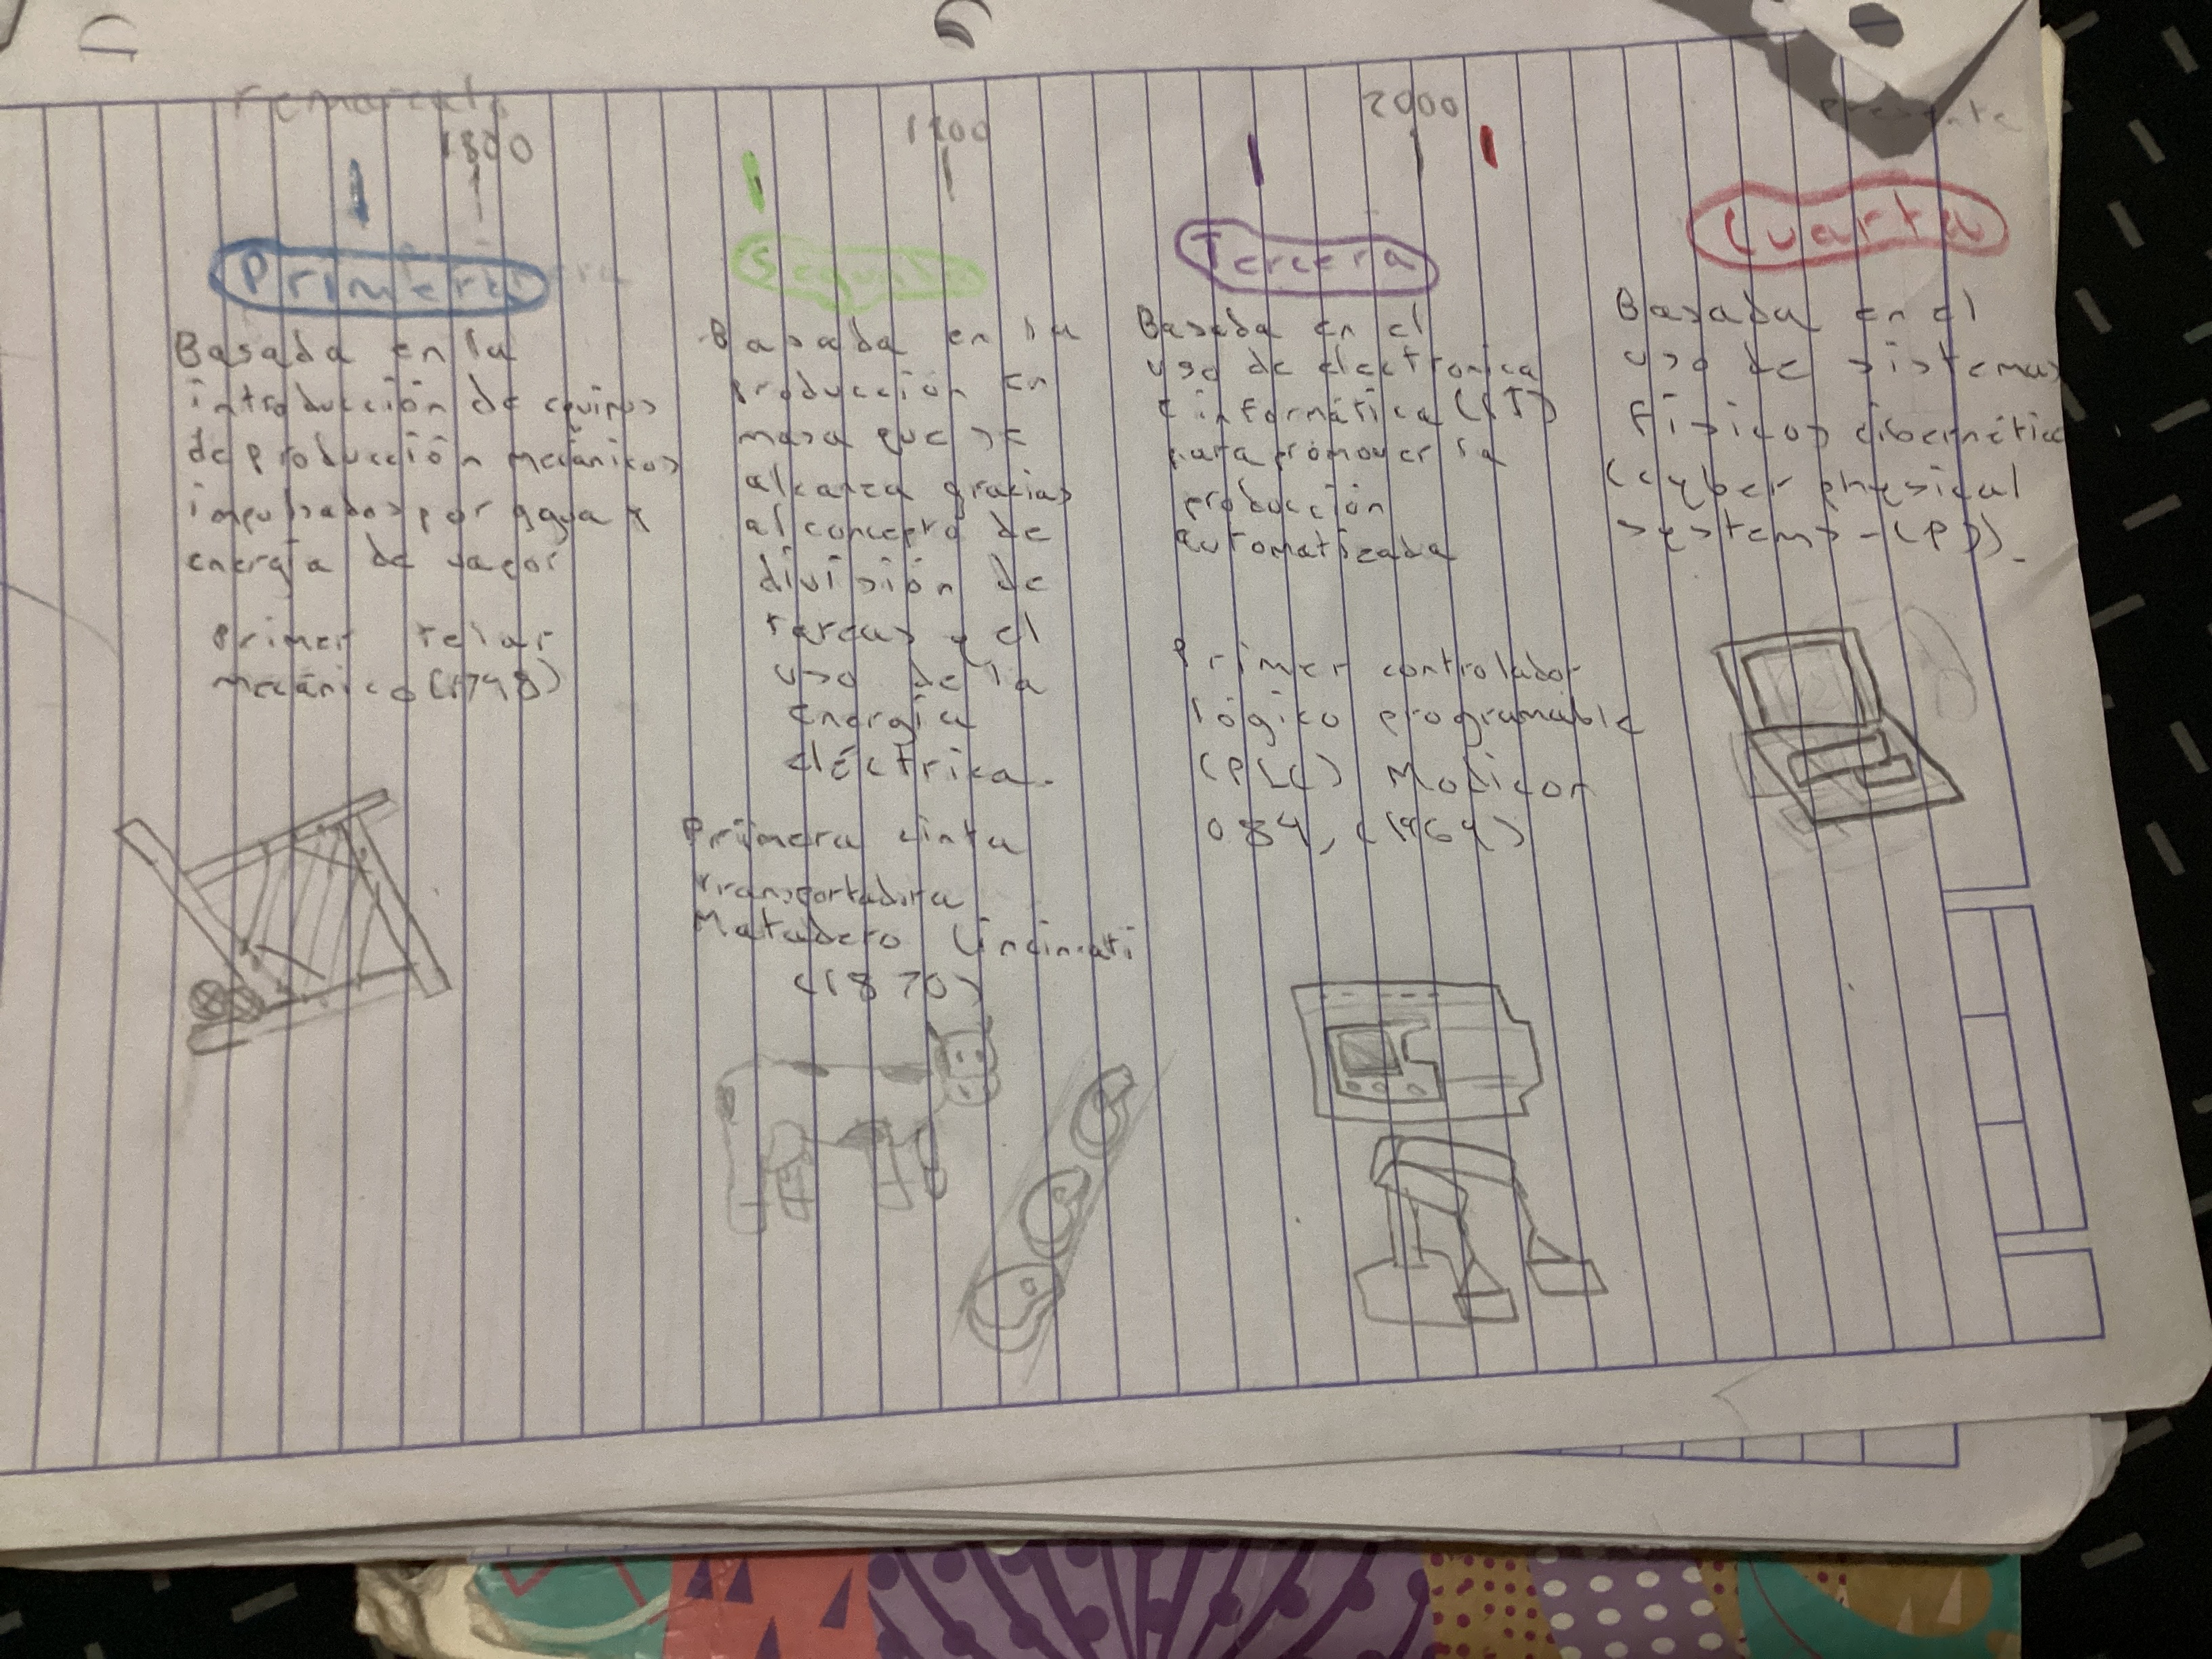 1800
1900
2000
presente
Primera
Basada en la
introducción de equipos
de producción mecánicos
impulsados por agua y
energía de vapor
Primer telar
mecánico (1798)
Segunda
Basada en la
producción en
masa que se
alcanza gracias
al concepto de
división de
tareas y el
uso de la
energía
eléctrica.
Primera cinta
transportadora
Matadero Cincinati
(1870)
Tercera
Basada en el
uso de electronica
e informática (IT)
para promover la
producción
automatizada
Primer controlador
lógico programable
(PLC) Modicon
084, (1969)
Cuarta
Basada en el
uso de sistemas
físicos cibernético
(cyber physical
systems-CPS).